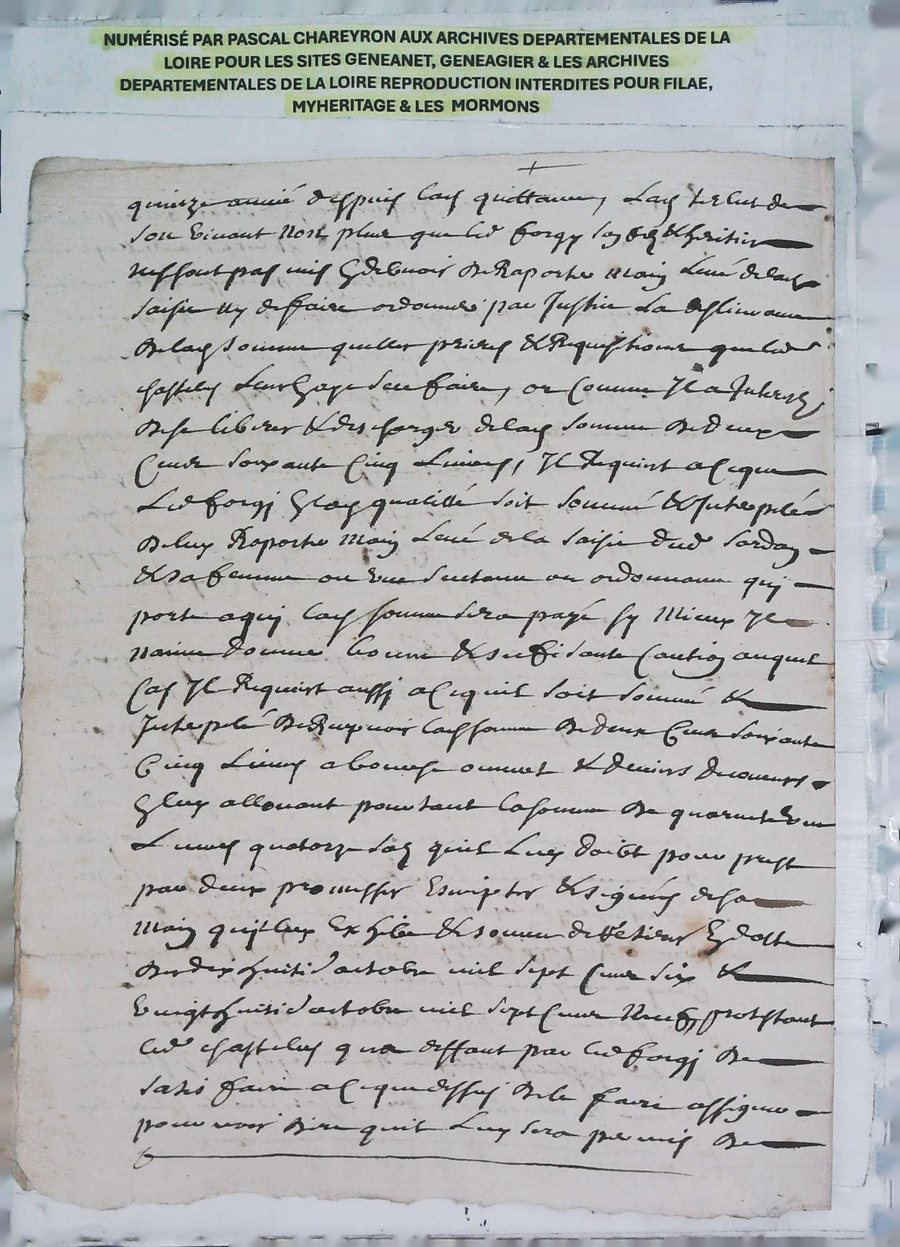 NUMÉRISÉ PAR PASCAL CHAREYRON AUX ARCHIVES DEPARTEMENTALES DE LA
LOIRE POUR LES SITES GENEANET, GENEAGIER & LES ARCHIVES
DEPARTEMENTALES DE LA LOIRE REPRODUCTION INTERDITES POUR FILAE,
MYHERITAGE & LES MORMONS
quinze année despuis quittance,
son vivant non plus que led forgy
pas mis de Raporter main levé
saisie ny de faire ordonner par Justice la deslivrance
somme quelles prieres & Requisitions que led
chastelus faire, or comme Jl a Interest
de se liberer & descharger somme de deux
cent soixante cinq Livres, Jl Requiert a ce que
Led forgj qualitté soit sommé & Interpelé
de luy Raporter main Levé de la saisie dud
& sa femme ou une sentence ou ordonnance qui
porte a qui somme sera payé sy mieux Jl
naime donner bonne & sufisante caution auquel
cas Jl Requiert aussj a ce quil soit sommé &
Interpelé de Recepvoir somme de deux cent soixante
cinq Livres a bourse ouverte & deniers
luy allouant pour tant la somme de quarente
Livres quatorze quil Luy doibt pour prest
par deux promesses & signées de sa
main quil luy Exhibe &
dix huiti d'octobre mil sept cent six &
vingt huiti d'octobre mil sept cent neuf, protestant
led chastelus qua deffaut par led forgj de
satis faire a ce que dessus de le faire assigner
pour voir dire quil Luy sera permis de